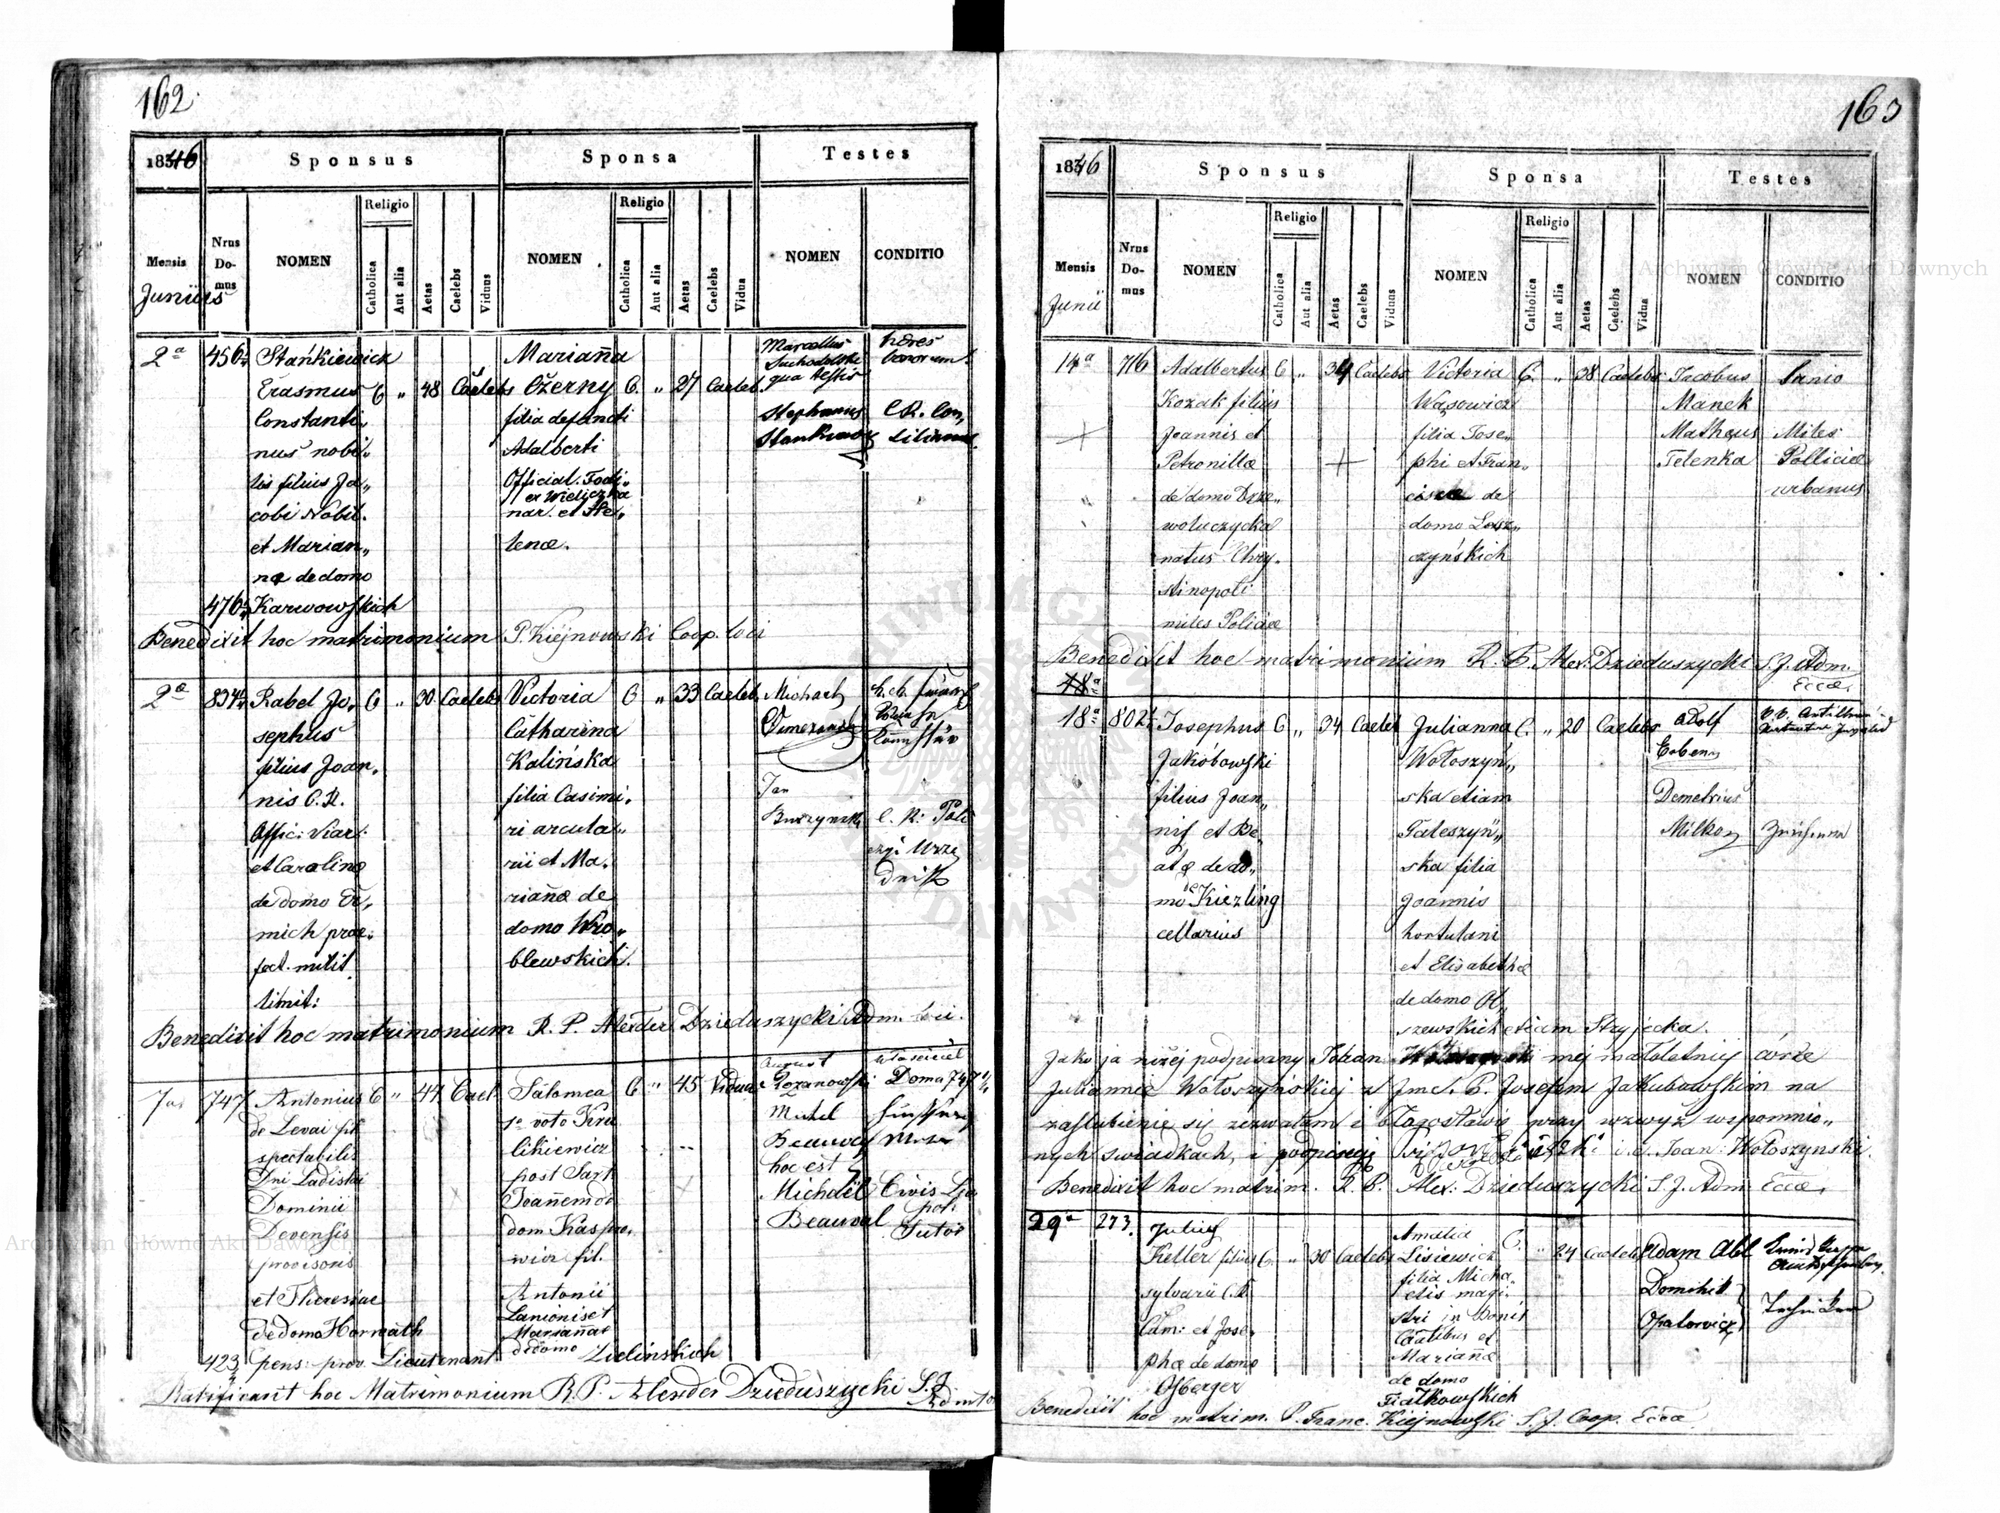 162.
1846
Sponsus
Sponsa
Testes
Mensis
Junius
Nrus Domus
NOMEN
Religio
Catholica
Aut alia
Aetas
Caelebs
Viduus
NOMEN
Religio
Catholica
Aut alia
Aetas
Caelebs
Vidua
NOMEN
CONDITIO
2a
456
Stańkiewicz
Erasmus
Constanti
nus nobi„
lis filius Ja„
cobi Nobil.
et Marian„
næ de domo
476
Karwowskich
C
„
48
Caelebs
Marianna
Ożerny
filia defuncti
Adalberti
Official. Fodi„
ex Wieliczka
nar. et He„
lenæ.
C.
„
27
Caeleb
Marcellus
Suchodolski
qua testis
Stephanus
Stankiewicz
hæres
bonorum
C.R. Con
siliarius
Benedixit hoc matrimonium P. Kiejnowski Coop. loci
2a
834
Rabel Jo„
sephus
filius Joan„
nis C.R.
Offic: Viar:
et Carolinæ
de domo Er„
mich præ„
fect. milit.
limit:
C
„
30
Caelebs
Victoria
Catharina
Kalińska
filia Casimi„
ri arcula„
rii et Ma„
riannæ de
domo Wró„
blewskich.
C
„
33
Caeleb.
Michael
Jan
Burzyński
C. K. Poli
cyji Urzę
dnik
Benedixit hoc matrimonium R. P. Alexder Dzieduszycki Adm. loci.
7a
747
Antonius
de Levai fil
spectabilis
Dni Ladislai
Dominii
Devensis
provisoris
et Theresiae
de domo Horwath
423
pens: prov. Lieutenant
C
„
41
Cael.
Salomea
1o voto Kru
likiewicz
post Sart
Joannem de
dom Kaspro„
wicz fil.
Antonii
Lanionis et
Mariannæ
de domo Zielinskich
C
„
45
Vidua
August
Rozanowski
Michel
Beauval
hoc est
Michaël
Beauval
właściciel
Domu 747
Civis Leo
pol.
Sutor
Ratificavit hoc Matrimonium R. P. Alexder Dzieduszycki S.J.
Admtor
163
1846
Sponsus
Sponsa
Testes
Mensis
Junii
Nrus Domus
NOMEN
Religio
Catholica
Aut alia
Aetas
Caelebs
Viduus
NOMEN
Religio
Catholica
Aut alia
Aetas
Caelebs
Vidua
NOMEN
CONDITIO
14a
716
Adalbertus
Kozak filius
Joannis et
Petronillæ
de domo Drze„
woluczycka
natus Chry„
stinopoli
miles Policiæ
C
„
34
Caelebs
Victoria
Wąsowicz
filia Jose„
phi et Fran„
ciscæ de
domo Losz„
czyńskich
C.
„
38
Caelebs
Jacobus
Manek
Matheus
Telenka
Lanio
Miles
Policiæ
urbanus
Benedixit hoc matrimonium R. P. Alex. Dzieduszycki S.J. Adm.
Eccæ.
18a
18a
802
Josephus
Jakóbowski
filius Joan„
nis et Be„
atæ de do„
mo de Kiezling
cellarius
C
„
34
Caeleb
Julianna
Wołoszyń„
ska etiam
Taleszyń„
ska filia
Joannis
hortulani
et Elisabethæ
de domo Ol„
szewskich etiam Stryjecka.
C.
„
20
Caelebs
Adolf
Erben
Demetrius
Milko
Jako ja niżej podpisany Johan mej małoletniej córce
Juliannie Wołoszyńskiej z Jmc. P. Josefem Jakubowskim na
zaślubienie się zezwalam i błogosławię przy wzwyż wspomnio„
nych świadkach, i podpisuję i. e. Joan: Wołoszynski.
Benedixit hoc matrim. R. P. Alex: Dzieduszycki S.J. Adm. Eccæ.
29a
273.
Julius
Keller filius
sylvani C.R.
Cam: et Jose„
phæ de domo
Osberger
C.
„
30
Caelebs
Amalia
Lisiewicz
filia Micha„
elis magi„
stri in Bonis
Cralibus et
Mariannæ
de domo
Fiałkowskich
C.
„
24
Caelebs
Adam Abl
Dominik
Opatowicz
Benedixit hoc matrim. P. Franc. Kiejnowski S.J. Coop. Eccæ
Archiwum Główne Akt Dawnych
Archiwum Główne Akt Dawnych